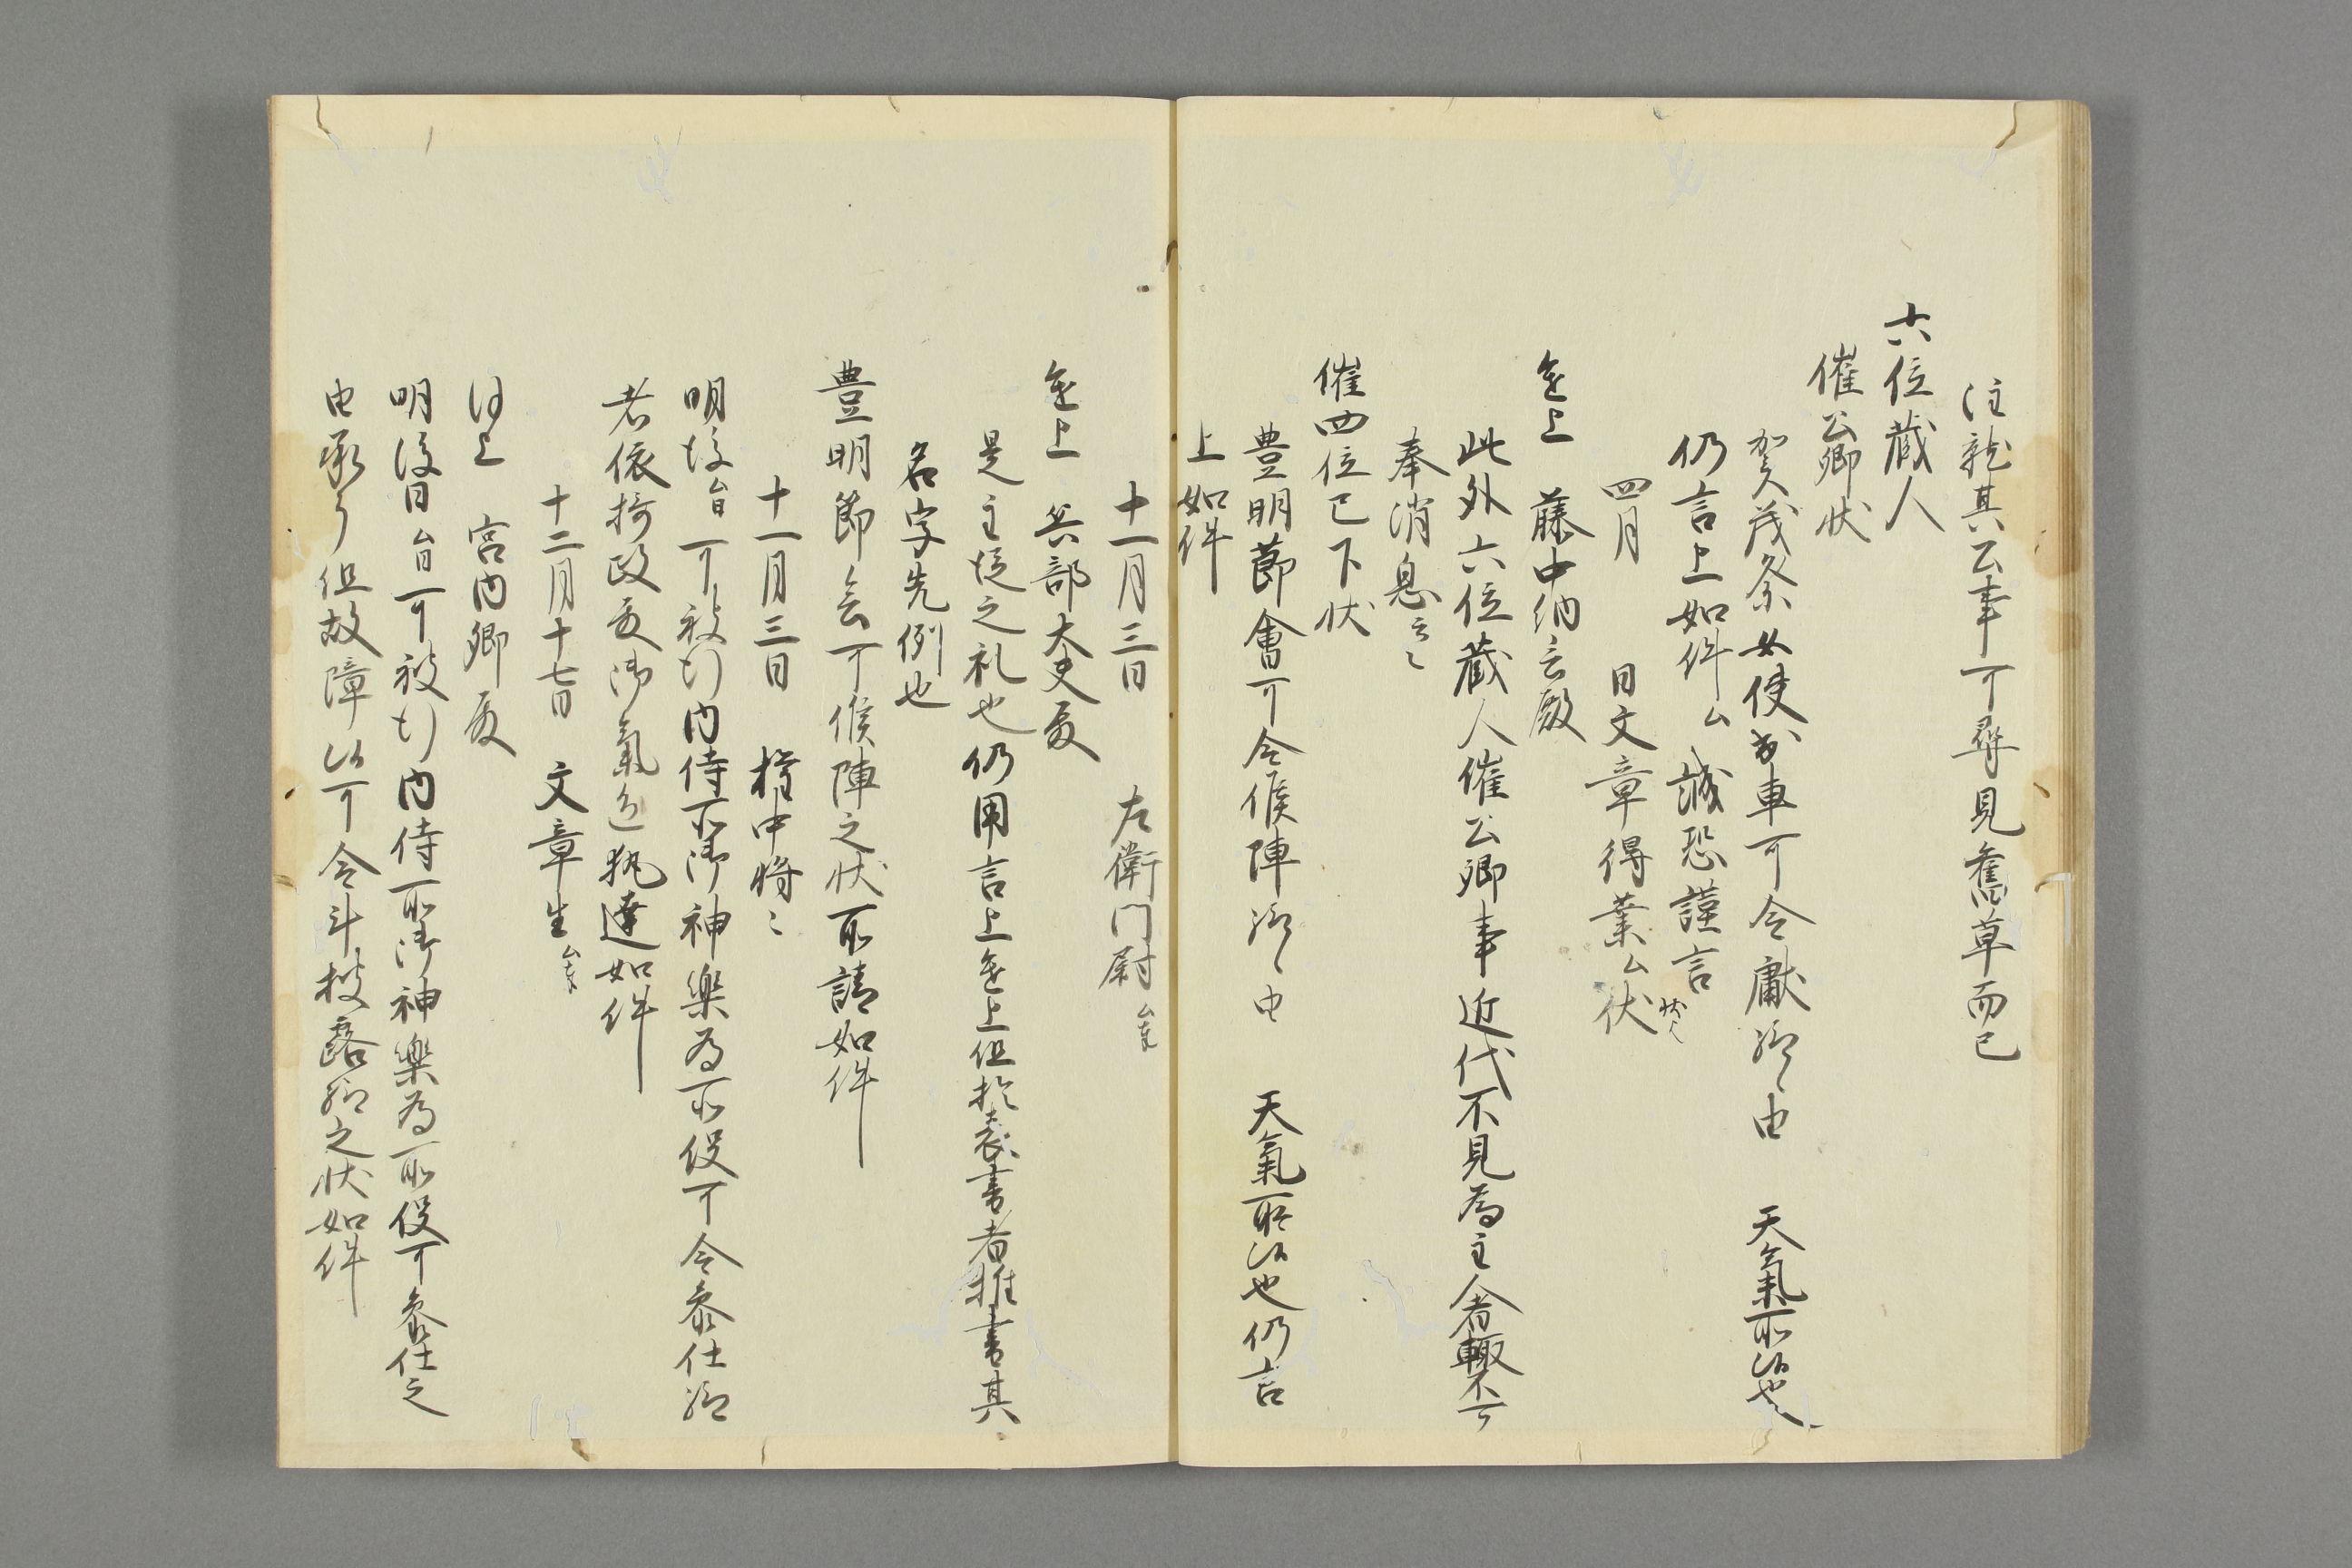 注就其公事可尋見舊草而已
六位蔵人
催公卿状
賀茂祭女使出車可令献給之由 天氣所候也
仍言上如件ム誠恐謹言
四月 日文章得業ム状
進上 藤中納言殿
此外六位蔵人催公卿事近代不見為主人者輙不可
奉消息云々
催四位已下状
豊明節會可令候陣給之由 天氣所候也仍言
上如件
十一月三日 左衛門尉
進上 兵部大夫殿
是主従之礼也仍用言上進上但於表書者推書其
名字先例也
豊明節会可候陣之状所請如件
十一月三日 権中将
明後日可被行内侍所御神樂為所役可令参仕給
者依摂政殿御氣色執達如件
十二月十七日 文章生
謹上 宮内卿殿
明後日可被行内侍所御神樂為所役可参仕之
由承了但故障候可令斗披露給之状如件